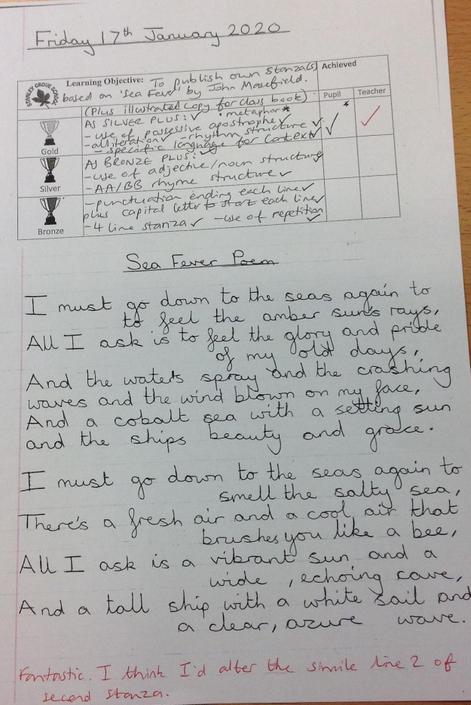 Friday 17th January 2020
Learning Objective: To publish own Stanza(s)
based on 'Sea Fever' by John Masefield.
Achieved
(Plus illustrated copy for class book)
Pupil
Teacher
Gold
AS SILVER PLUS: ✓ • metaphor *
- use of possessive apostrophe ✓
- alliteration ✓ - rhythm structure ✓
- specific language for context ✓
Silver
AS BRONZE PLUS: ✓
- use of adjective/noun structure ✓
- AA/BB rhyme structure ✓
Bronze
- punctuation ending each line ✓
plus capital letter to start each line ✓
- 4 line stanza ✓ - use of repetition ✓
Sea Fever Poem
I must go down to the seas again to
to feel the amber sun's rays,
All I ask is to feel the glory and pride
of my old days,
And the water's spray and the crashing
waves and the wind blown on my face,
And a cobalt sea with a setting sun
and the ships beauty and grace.
I must go down to the seas again to
smell the salty sea,
There's a fresh air and a cool air that
brushes you like a bee,
All I ask is a vibrant sun and a
wide, echoing cave,
And a tall ship with a white sail and
a clear, azure wave.
Fantastic. I think I'd alter the simile line 2 of
second stanza.